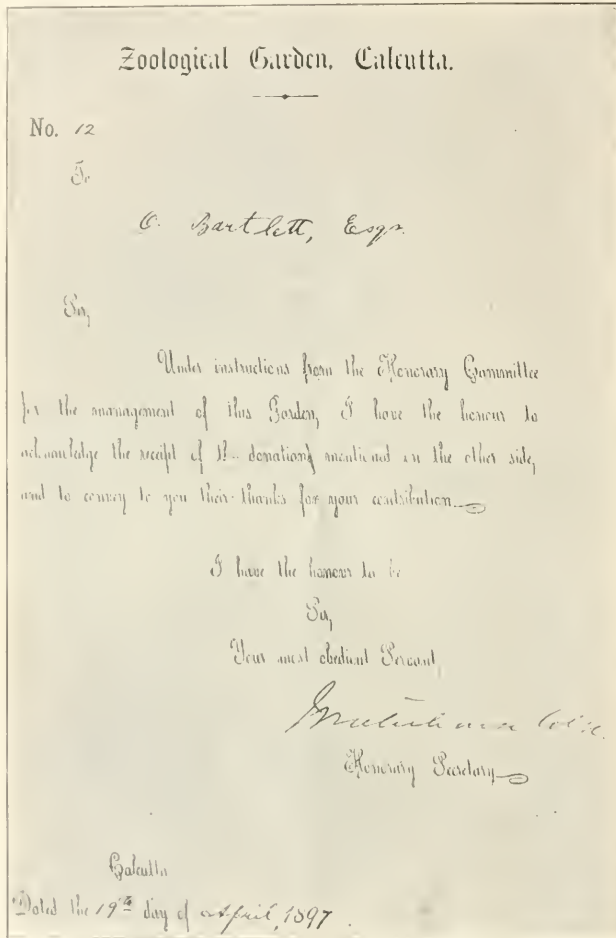 Zoological Garden, Calcutta.
No. 12
To
C. Bartlett, Esqr.
Sir,
Under instructions from the Honorary Committee
for the management of this Garden, I have the honour to
acknowledge the receipt of the donations mentioned on the other side,
and to convey to you their thanks for your contribution.
I have the honour to be
Sir,
Your most obedient Servant,
Honorary Secretary
Calcutta
Dated the 19th day of April, 1897.